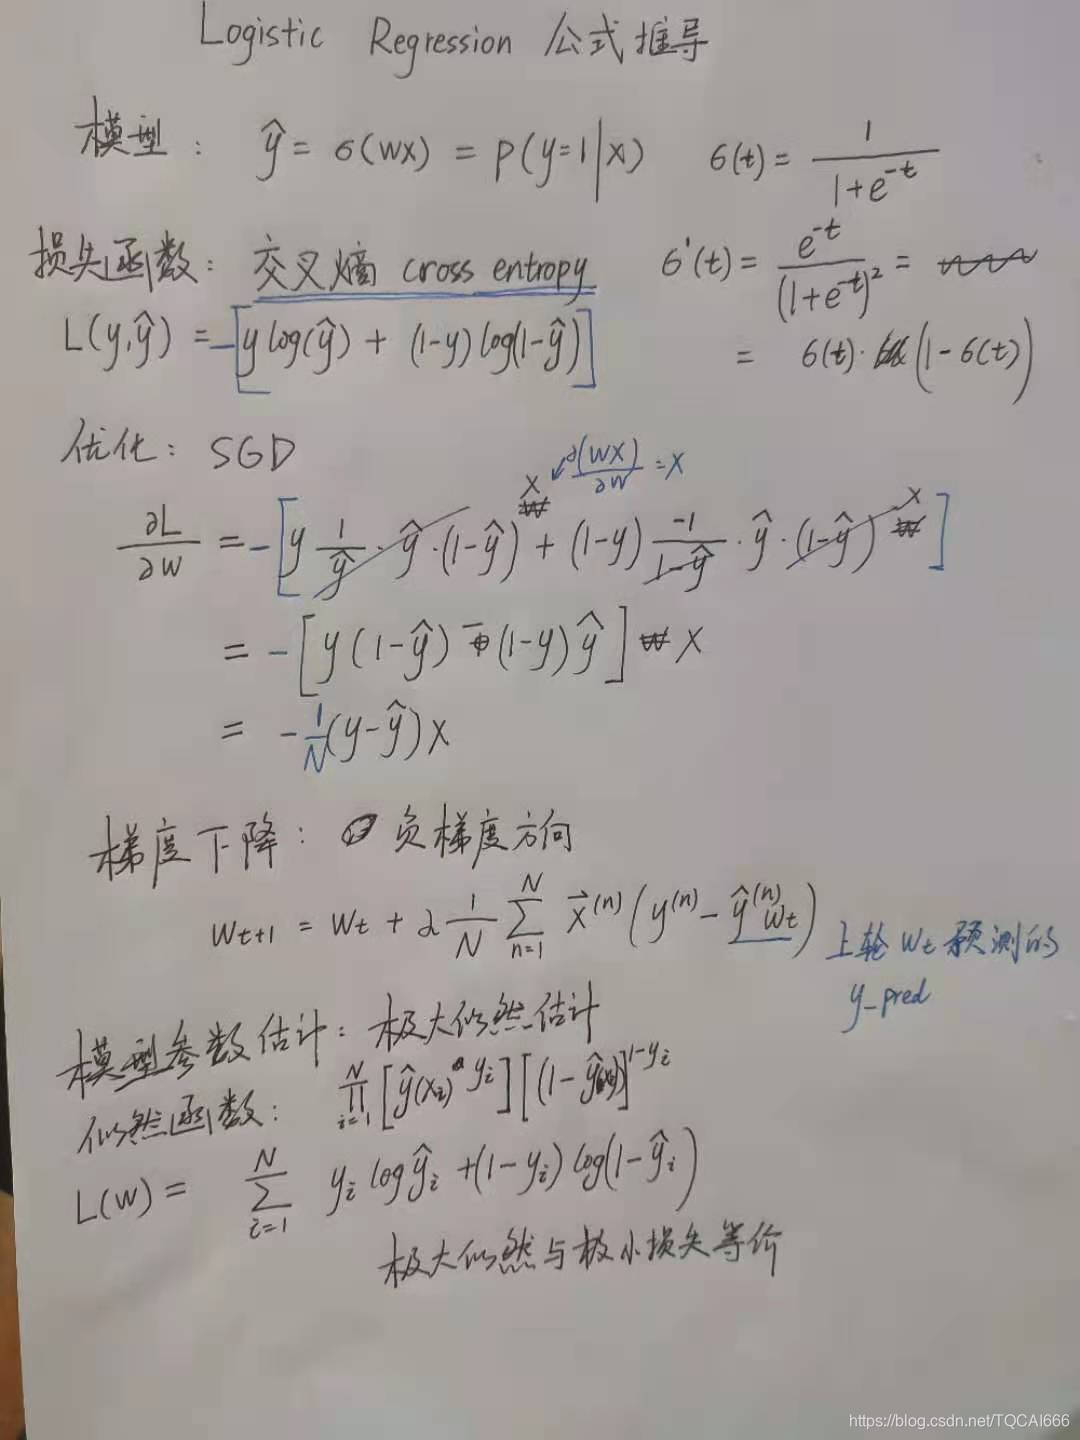 Logistic Regression 公式推导
模型: ŷ = σ(wx) = P(y=1|x) σ(t) = 1/(1+e^{-t})
损失函数: 交叉熵 cross entropy σ'(t) = e^{-t}/(1+e^{-t})² =
L(y,ŷ) = -[y log(ŷ) + (1-y) log(1-ŷ)] = σ(t)·(1-σ(t))
优化: SGD
x ↙ ∂(wx)/∂w = x
∂L/∂w = -[y 1/ŷ · ŷ·(1-ŷ) x + (1-y) -1/(1-ŷ) · ŷ·(1-ŷ) x]
= -[y(1-ŷ) - (1-y)ŷ] x
= -1/N (y-ŷ)x
梯度下降: 负梯度方向
w_{t+1} = w_t + λ 1/N ∑_{n=1}^{N} x⃗^{(n)} (y^{(n)} - ŷ^{(n)}_{w_t})
上轮 w_t 预测的
y_pred
模型参数估计: 极大似然估计
似然函数: ∏_{i=1}^{N} [ŷ(x_i)^{y_i}][(1-ŷ)]^{1-y_i}
L(w) = ∑_{i=1}^{N} y_i log ŷ_i + (1-y_i) log(1-ŷ_i)
极大似然与极小损失等价
https://blog.csdn.net/TQCAI666